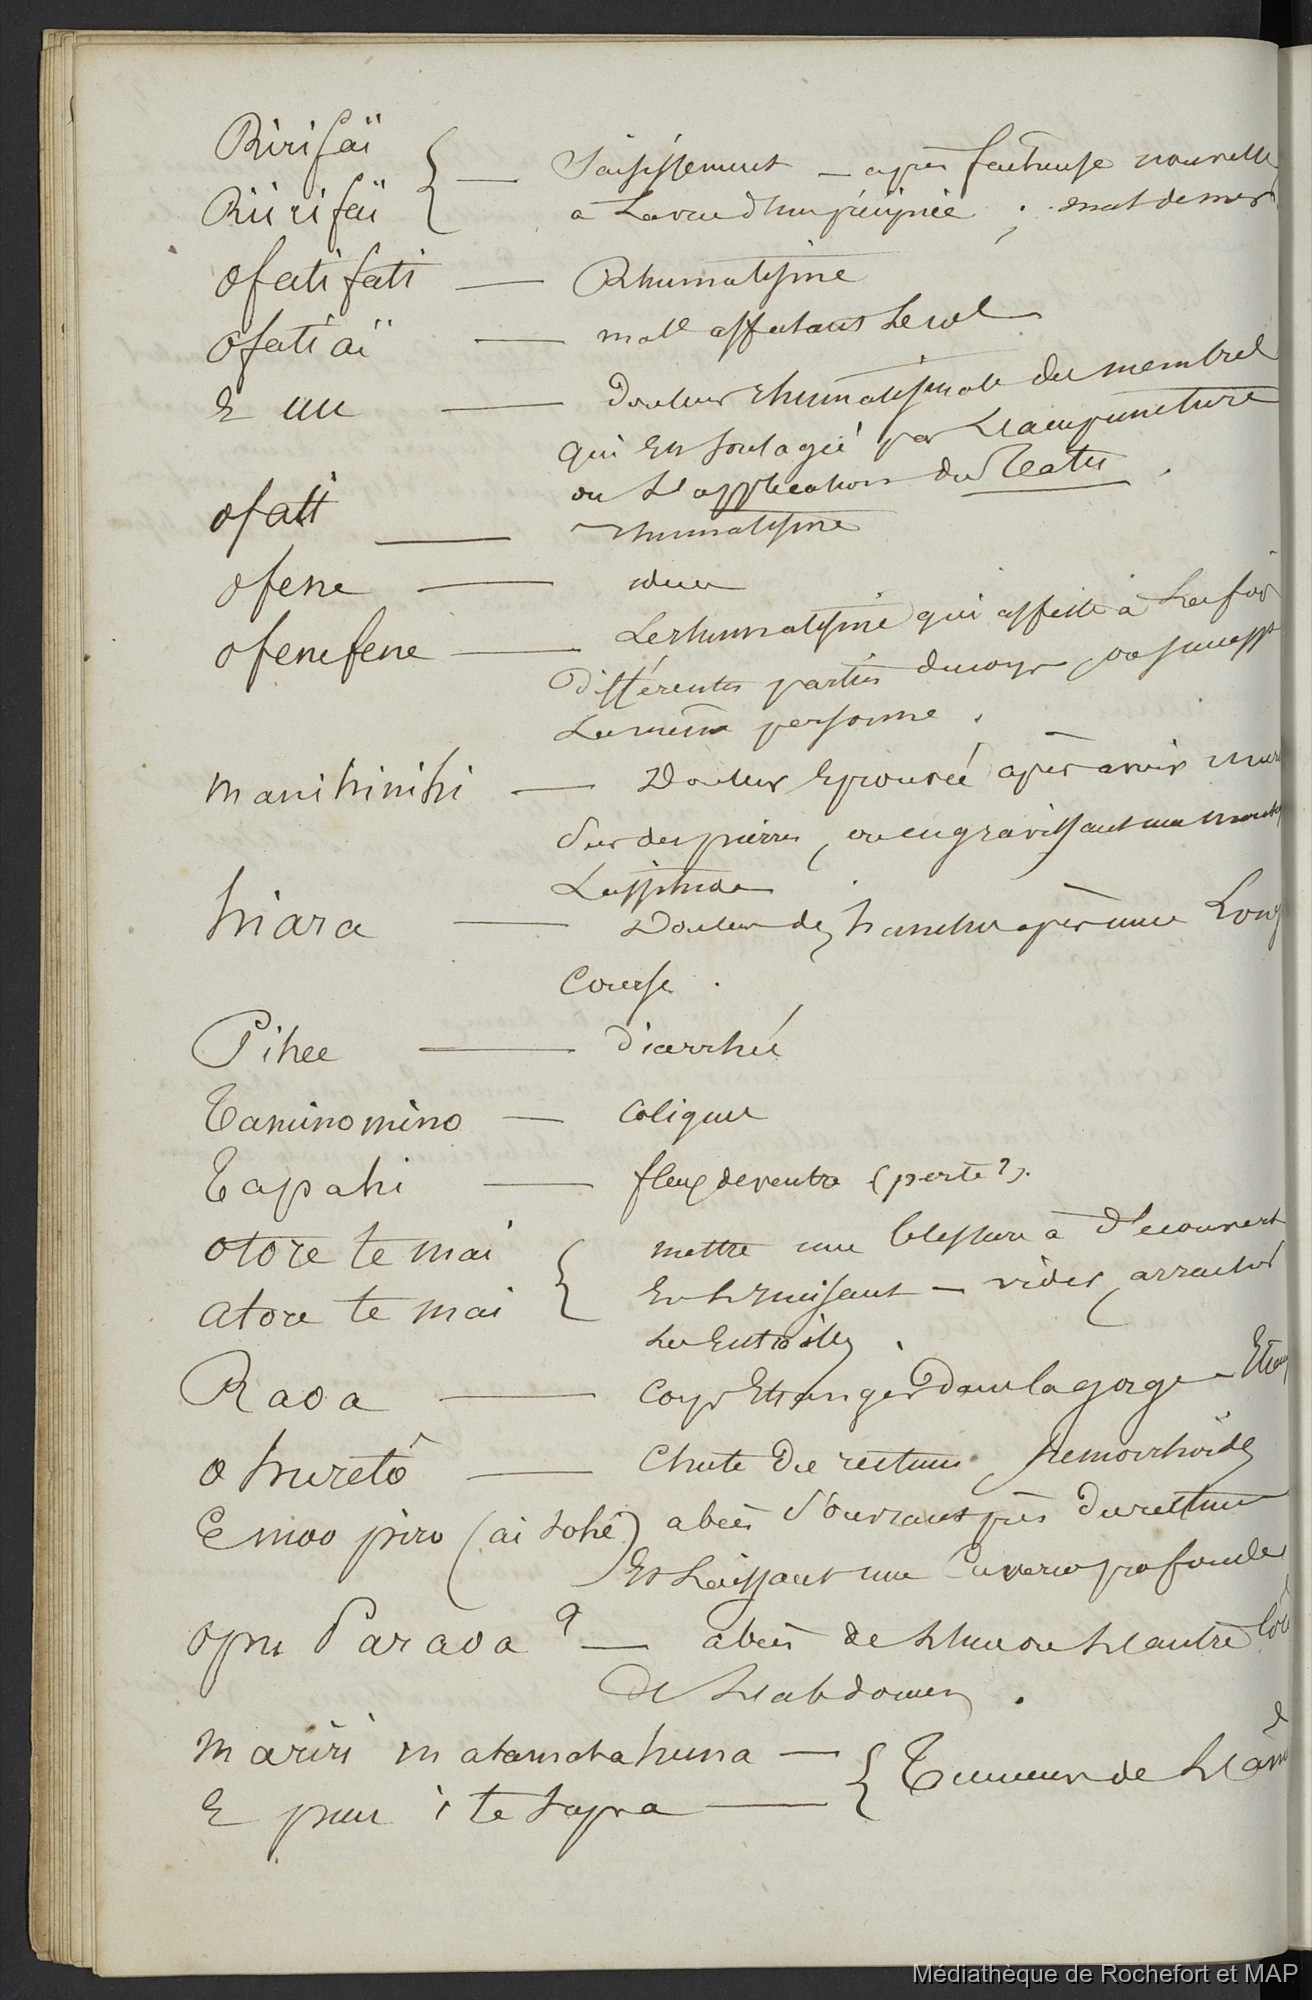 Ririfaï { — Saisissement — après facheuse nouvelle
Riirifaï à la vue d'une ; mal de mer
Ofatifati — Rhumatisme
Ofatiaï — mall affectant le col
E uu — Douleur rhumatismale du membre
qui est soulagée par l'acupuncture
ou l'application du Teatu .
Ofati — rhumatisme
Ofene — idem
Ofenefene — Le rhumatisme qui affecte à la fois
différentes parties du corps, ou
la même personne .
manihinihi — Douleur éprouvée après avoir
sur des pierres, ou en gravissant une
Lassitude
hiara — Douleur des hanches après une Long
course .
Pihee — diarrhée
Taminomino — Coliques
Tapahi — flux de ventre (perte ?).
Otore te mai { mettre une blessure à découvert
Atore te mai — vider, arracher
les Entrailles .
Raoa — Corps Etranger dans la gorge —
O huretô — Chute du rectum hémorrhoïdes
E moo piro (ai hohé) abcès s'ouvrant près du rectum
et laissant une profonde
Opu Paraoa ? — abcès de l'une ou l'autre côté
de l'abdomen .
Mariri matamatahuna — { Tumeur de l'aîne
E puu i te hapa —
Médiathèque de Rochefort et MAP